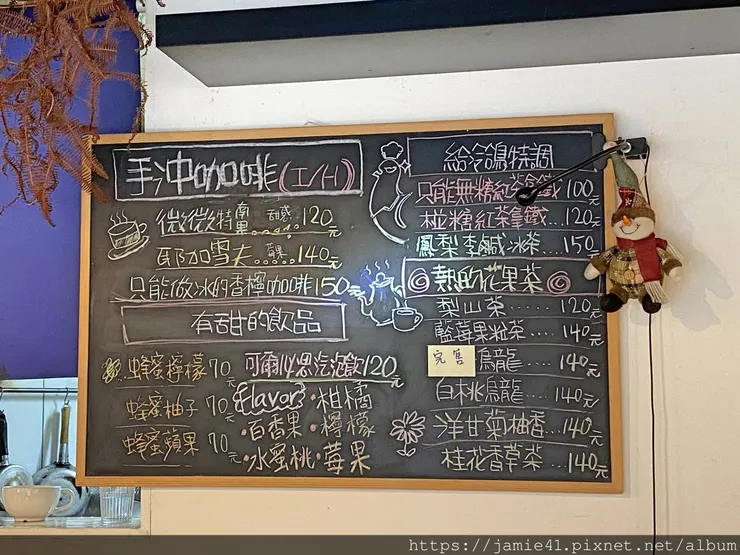 手沖咖啡(I/H)
微微特南果 甜惑.....120元
耶加雪夫 莓果....140元
只能做冰的香檸咖啡150元
有甜的飲品
蜂蜜檸檬 70元
蜂蜜柚子 70元
蜂蜜蘋果 70元
可爾必思汽泡飲120元
flavor?・柑橘
・百香果・檸檬
・水蜜桃・莓果
給冷鴿特調
只能無糖紅茶拿鐵 100元
椪糖紅茶拿鐵....120元
鳳梨李鹹冰茶...150元
熱的花果茶
梨山茶.....120元
藍莓果粒茶....140元
完售
烏龍....140元
白桃烏龍....140元
洋甘菊柚香...140元
桂花香草茶...140元
https://jamie41.pixnet.net/album